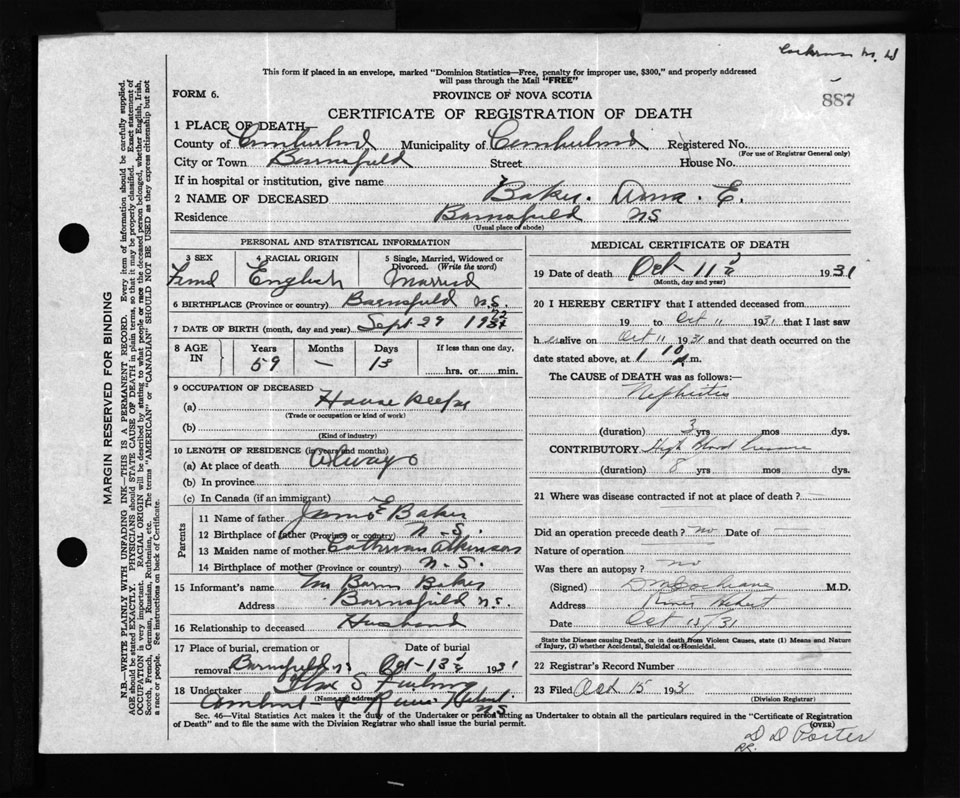 This form if placed in an envelope, marked "Dominion Statistics—Free, penalty for improper use, $300," and properly addressed
will pass through the Mail "FREE"
FORM 6.
PROVINCE OF NOVA SCOTIA
887
CERTIFICATE OF REGISTRATION OF DEATH
1 PLACE OF DEATH
County of Cumberland Municipality of Cumberland Registered No.
(For use of Registrar General only)
City or Town Barnsfield Street House No.
If in hospital or institution, give name
2 NAME OF DECEASED Baker. Anna. E.
Residence Barnsfield NS
(Usual place of abode)
PERSONAL AND STATISTICAL INFORMATION
3 SEX 4 RACIAL ORIGIN 5 Single, Married, Widowed or Divorced. (Write the word)
Femal English Married
6 BIRTHPLACE (Province or country) Barnsfield N.S.
7 DATE OF BIRTH (month, day and year) Sept 29
8 AGE IN Years Months Days If less than one day,
59 — 13 hrs. or min.
9 OCCUPATION OF DECEASED
(a) House Keeper
(Trade or occupation or kind of work)
(b)
(Kind of industry)
10 LENGTH OF RESIDENCE (in years and months)
(a) At place of death Always
(b) In province
(c) In Canada (if an immigrant)
Parents
11 Name of father James E Baker
12 Birthplace of father (Province or country) N.S.
13 Maiden name of mother Atkinson
14 Birthplace of mother (Province or country) N.S.
15 Informant's name Baker
Address Barnsfield N.S.
16 Relationship to deceased Husband
17 Place of burial, cremation or removal Barnsfield NS Date of burial Oct 13 1931
18 Undertaker
(Name and address)
Amherst & River Hebert NS
MEDICAL CERTIFICATE OF DEATH
19 Date of death Oct 11 1931
(Month, day and year)
20 I HEREBY CERTIFY that I attended deceased from
19 to Oct 11 1931 that I last saw
h er alive on Oct 11 1931 and that death occurred on the
date stated above, at 1 10 m.
The CAUSE of DEATH was as follows:
Nephritis
(duration) 3 yrs mos dys.
CONTRIBUTORY High Blood Pressure
(duration) 8 yrs mos dys.
21 Where was disease contracted if not at place of death? —
Did an operation precede death? no Date of —
Nature of operation
Was there an autopsy? no
(Signed) Cochrane M.D.
Address River Hebert
Date Oct 13/31
State the Disease causing Death, or in death from Violent Causes, state (1) Means and Nature
of Injury, (2) whether Accidental, Suicidal or Homicidal.
22 Registrar's Record Number
23 Filed Oct 15 1931
(Division Registrar)
Sec. 46—Vital Statistics Act makes it the duty of the Undertaker or person acting as Undertaker to obtain all the particulars required in the "Certificate of Registration
of Death" and to file the same with the Division Registrar who shall issue the burial permit.
(OVER)
D D Porter
MARGIN RESERVED FOR BINDING
N.B.—WRITE PLAINLY WITH UNFADING INK—THIS IS A PERMANENT RECORD. Every item of information should be carefully supplied.
AGE should be stated EXACTLY. PHYSICIANS should STATE CAUSE OF DEATH in plain terms, so that it may be properly classified. Exact statement of
OCCUPATION is very important. RACIAL ORIGIN will be described by stating to what people or race the deceased person belonged, whether English, Irish,
Scotch, French, German, Russian, Ruthenian, etc. The terms "AMERICAN" or "CANADIAN" SHOULD NOT BE USED as they express citizenship but not
a race or people. See instructions on back of Certificate.